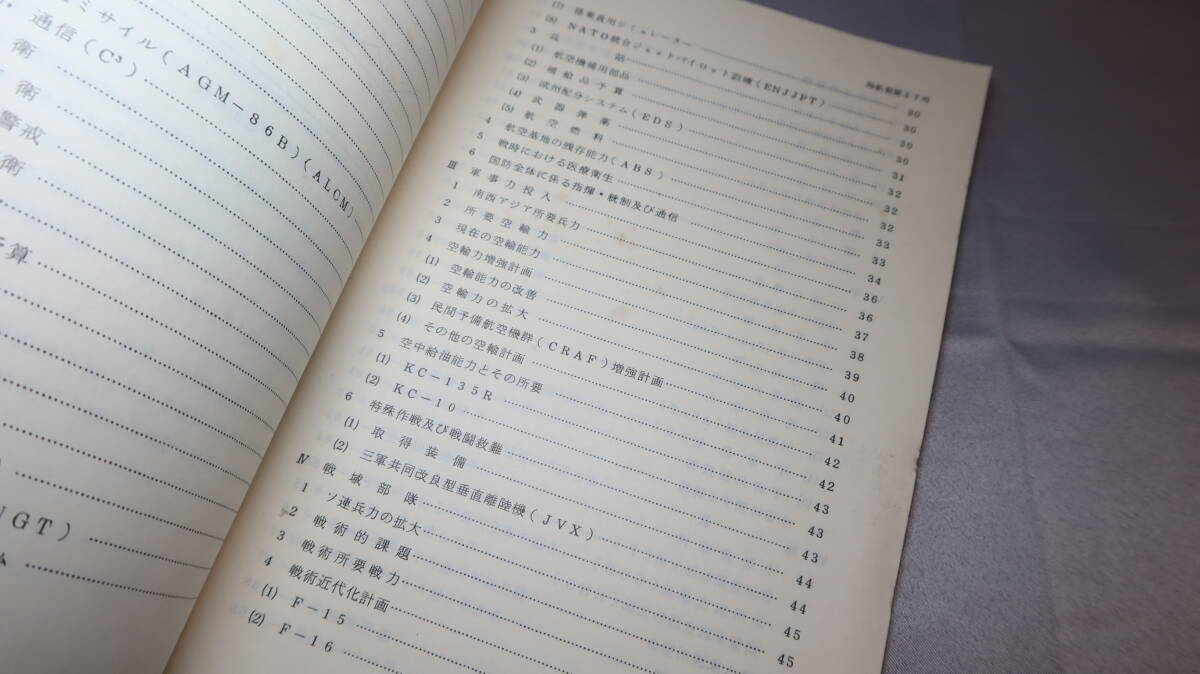 ミサイル(AGM-86B)(ALCM)
通信(C³)
術
術
警戒
術
算
NGT)
ム
(7) 搭乗員用シミュレーター 30
(8) NATO統合ジェットパイロット訓練(ENJJPT) 30
3 兵站 30
(1) 航空機補用部品 30
(2) 補給品予算 31
(3) 欧州配分システム(EDS) 32
(4) 武器弾薬 32
(5) 航空燃料 32
4 航空基地の残存能力(ABS) 33
5 戦時における医療衛生 33
6 国防全体に係る指揮・統制及び通信 34
Ⅲ 軍事力投入 36
1 南西アジア所要兵力 36
2 所要空輸力 37
3 現在の空輸能力 38
4 空輸力増強計画 39
(1) 空輸能力の改善 40
(2) 空輸力の拡大 40
(3) 民間予備航空機群(CRAF)増強計画 41
(4) その他の空輸計画 42
5 空中給油能力とその所要 42
(1) KC-135R 43
(2) KC-10 43
6 特殊作戦及び戦闘救難 43
(1) 取得装備 44
(2) 三軍共同改良型垂直離陸機(JVX) 44
Ⅳ 戦域部隊 45
1 ソ連兵力の拡大 45
2 戦術的課題
3 戦術所要戦力
4 戦術近代化計画
(1) F-15
(2) F-16